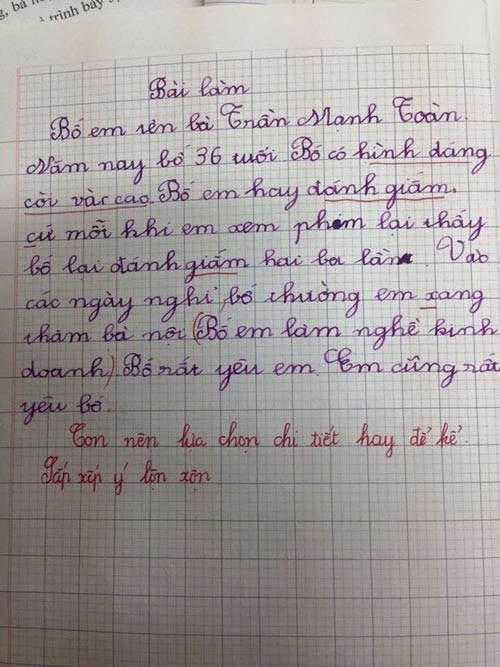 g, bá n
trình bày
Bài làm
Bố em tên bà Trần Mạnh Toàn.
Năm nay bố 36 tuổi. Bố có hình dáng
còi vàc cao. Bố em hay dánh giấm.
cứ mỗi khi em xem phim lại thấy
bố lại đánh giấm hai ba lần. Vào
các ngày nghỉ, bố thường em xang
thăm bà nội (Bố em làm nghề kinh
doanh). Bố rất yêu em. Em cũng rất
yêu bố.
Con nên lựa chọn chi tiết hay để kể.
Sắp xếp ý lộn xộn